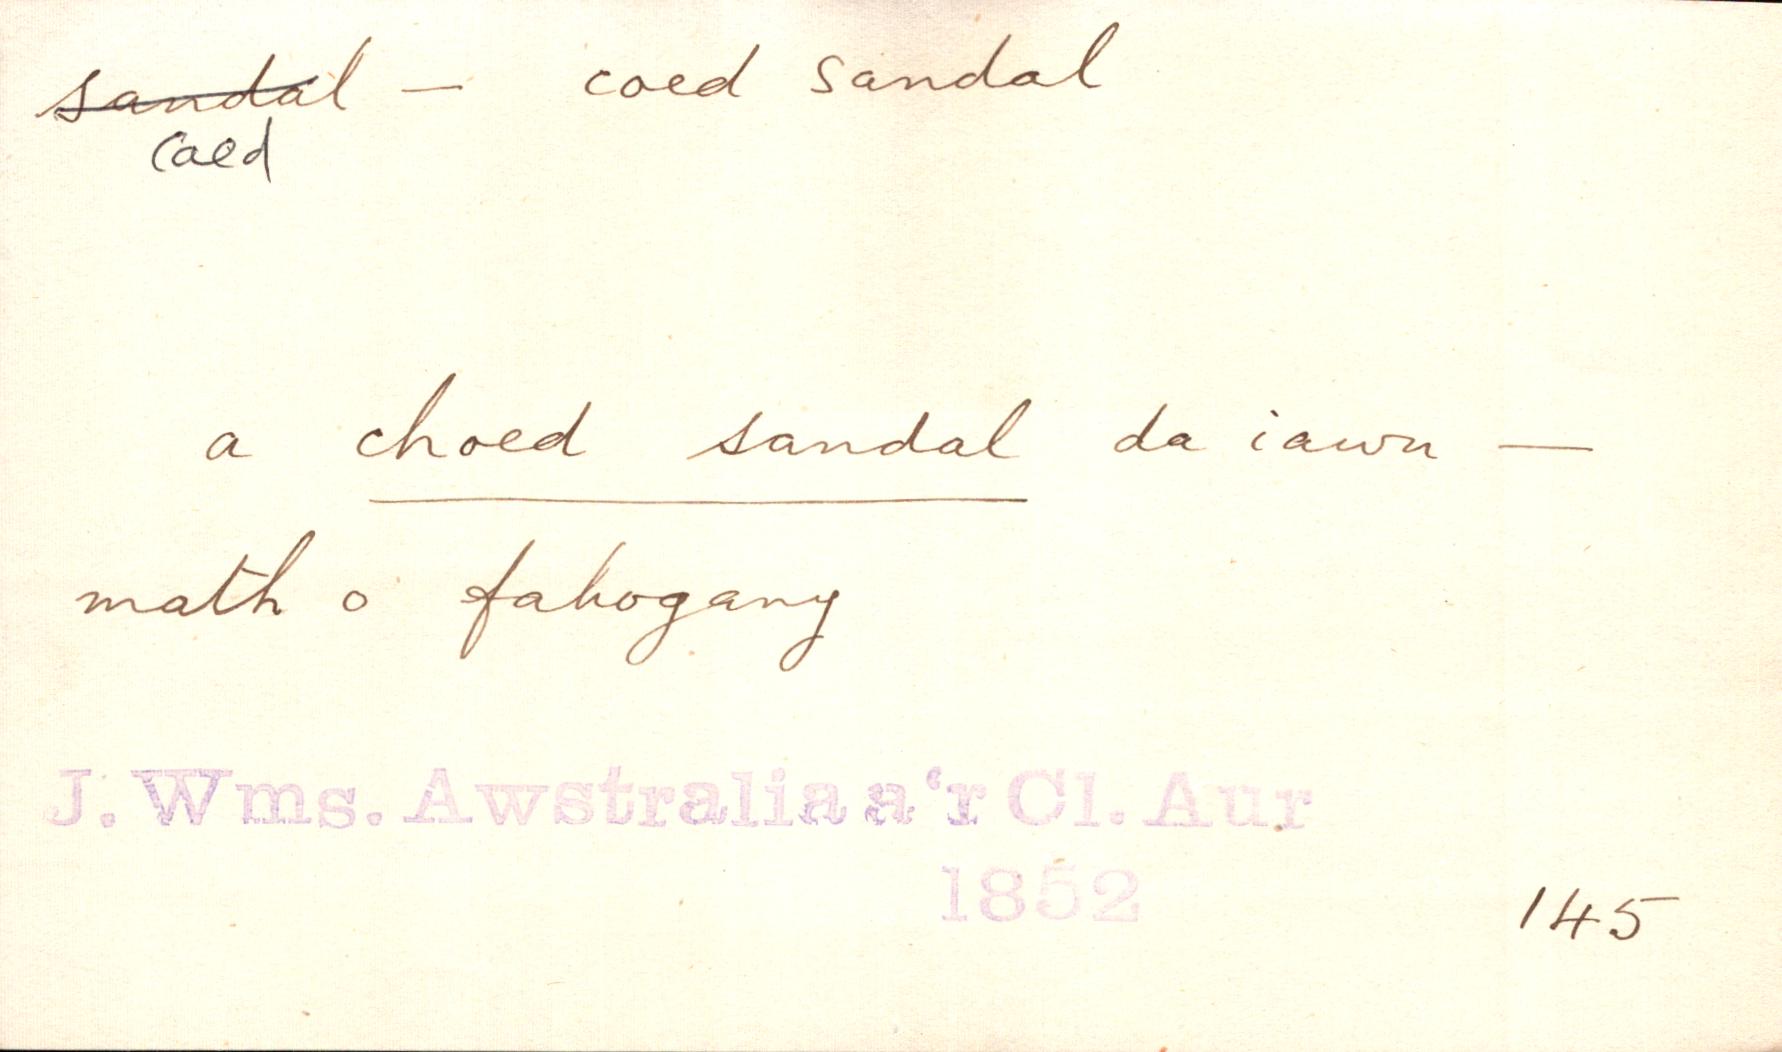 sandal — coed sandal
coed
a choed sandal da iawn —
math o fahogany
J. Wms. Awstralia a'r Cl. Aur
1852
145